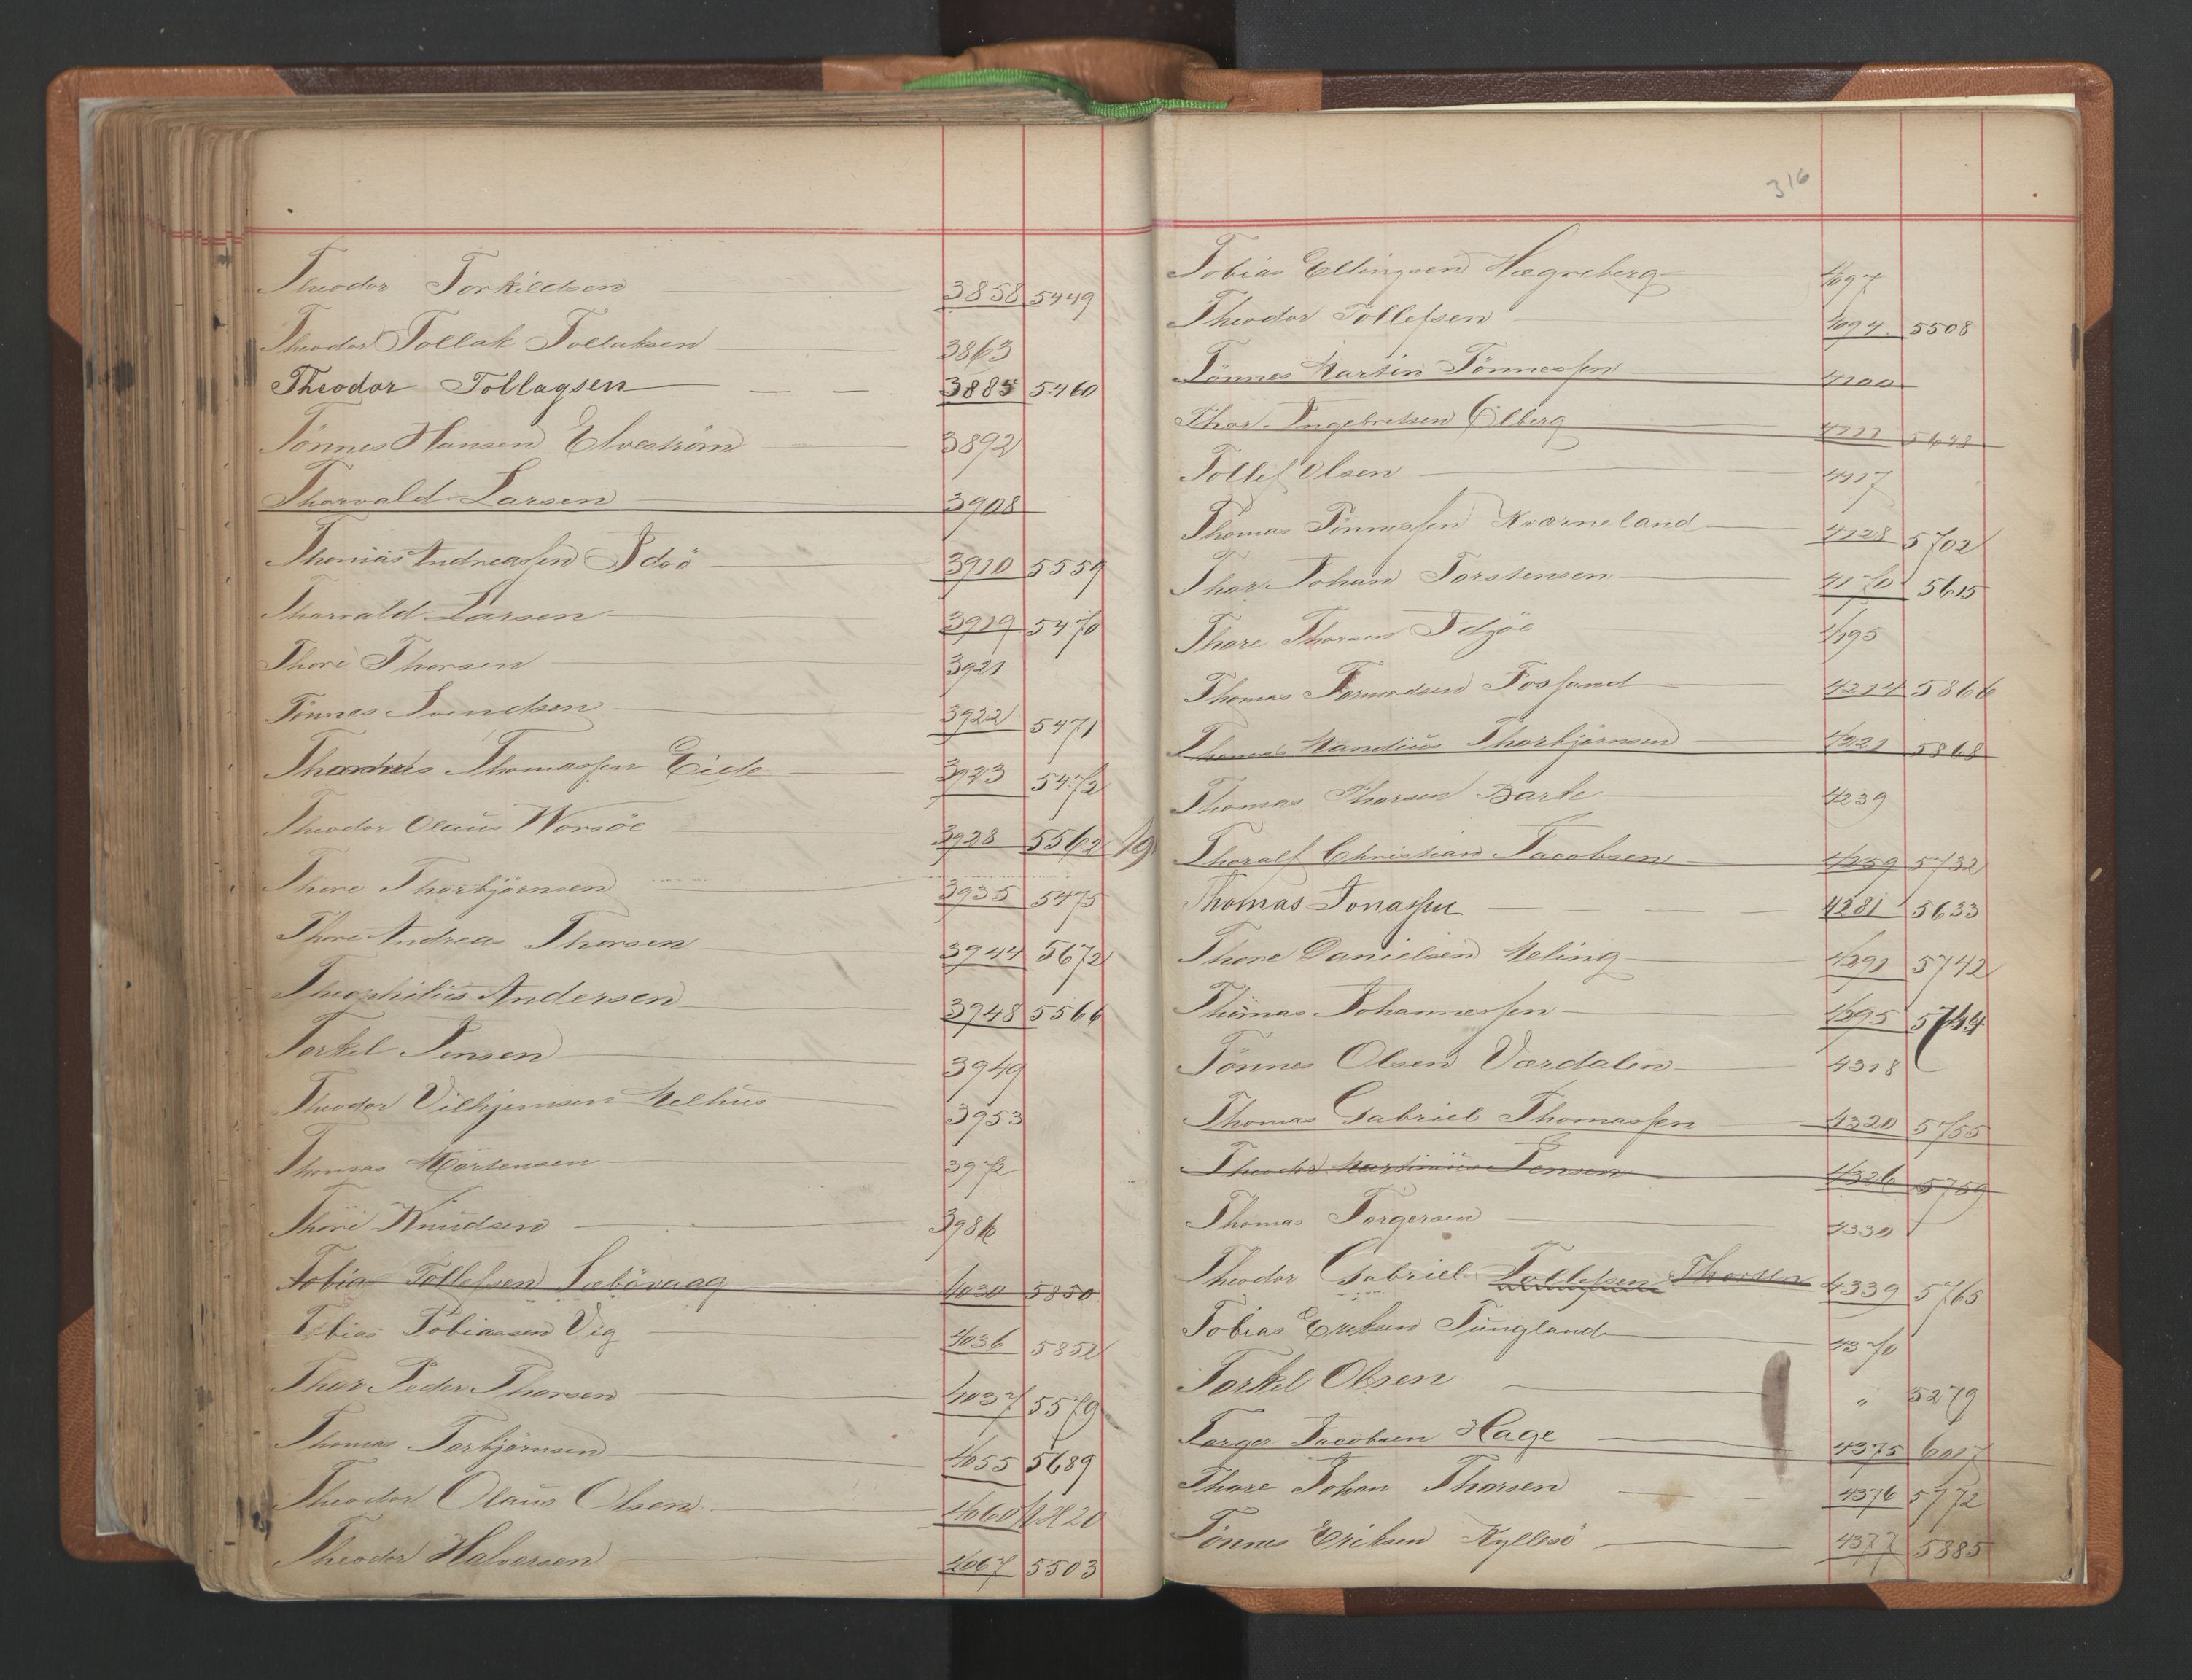 Theodor Torkildsen 3858 5449
Theodor Tollak Tollaksen 3863
Theodor Tollagsen 3885 5460
Tönnes Hansen Elveström 3892
Thorvald Larsen 3908
Thomas Andreassen Idsö 3910 5559
Thorvald Larsen 3919 5470
Thore Thorsen 3921
Tönnes Svendsen 3922 5471
Thomassen Eide 3923 5472
Theodor Olaus Worsöe 3928 5562 19
Thore Thorbjörnsen 3935 5475
Thore Andreas Thorsen 3944 5672
Theophilus Andersen 3948 5566
Torkel Jensen 3949
Theodor Vilhjemsen Melhus 3953
Thomas Mortensen 3972
Thore Knudsen 3986
Tobias Tollefsen Sæbövaag 4030 5850
Tobias Tobiassen Vig 4036 5852
Thor Peder Thorsen 4037 5579
Thomas Torbjörnsen 4055 5689
Theodor Olaus Olsen 4060
Theodor Halvorsen 4067 5503
316
Tobias Ellingsen Hægreberg 4097
Theodor Tollefsen 5508
Tönnes Martin Tönnessen
Thor Ingebretsen Ölberg
Tollef Olsen
Thomas Tönnessen Kværneland 4128 5702
Thor Johan Torstensen 4170 5615
Thore Thorsen Idsöe 4195
Thomas Tormodsen Fossand 4214 5866
Thomas Mandius Thorbjörnsen 4221 5868
Thomas Thorsen Barke 4239
Thoralf Christian Jacobsen 4259 5732
Thomas Jonassen 4281 5633
Thore Danielsen Meling 4291 5742
Thomas Johannessen 4295 5744
Tönnes Olsen Værdalen 4318
Thomas Gabriel Thomassen 4320 5755
Theodor Martinius Jensen 4326 5759
Thomas Torgersen 4330
Theodor Gabriel Tollefsen Thorsen 4339 5765
Tobias Eriksen Tungland 4370
Torkel Olsen " 5279
Torger Jacobsen Hage 4375 6017
Thore Johan Thorsen 4376 5772
Tönnes Eriksen Kyllesö 4377 5885